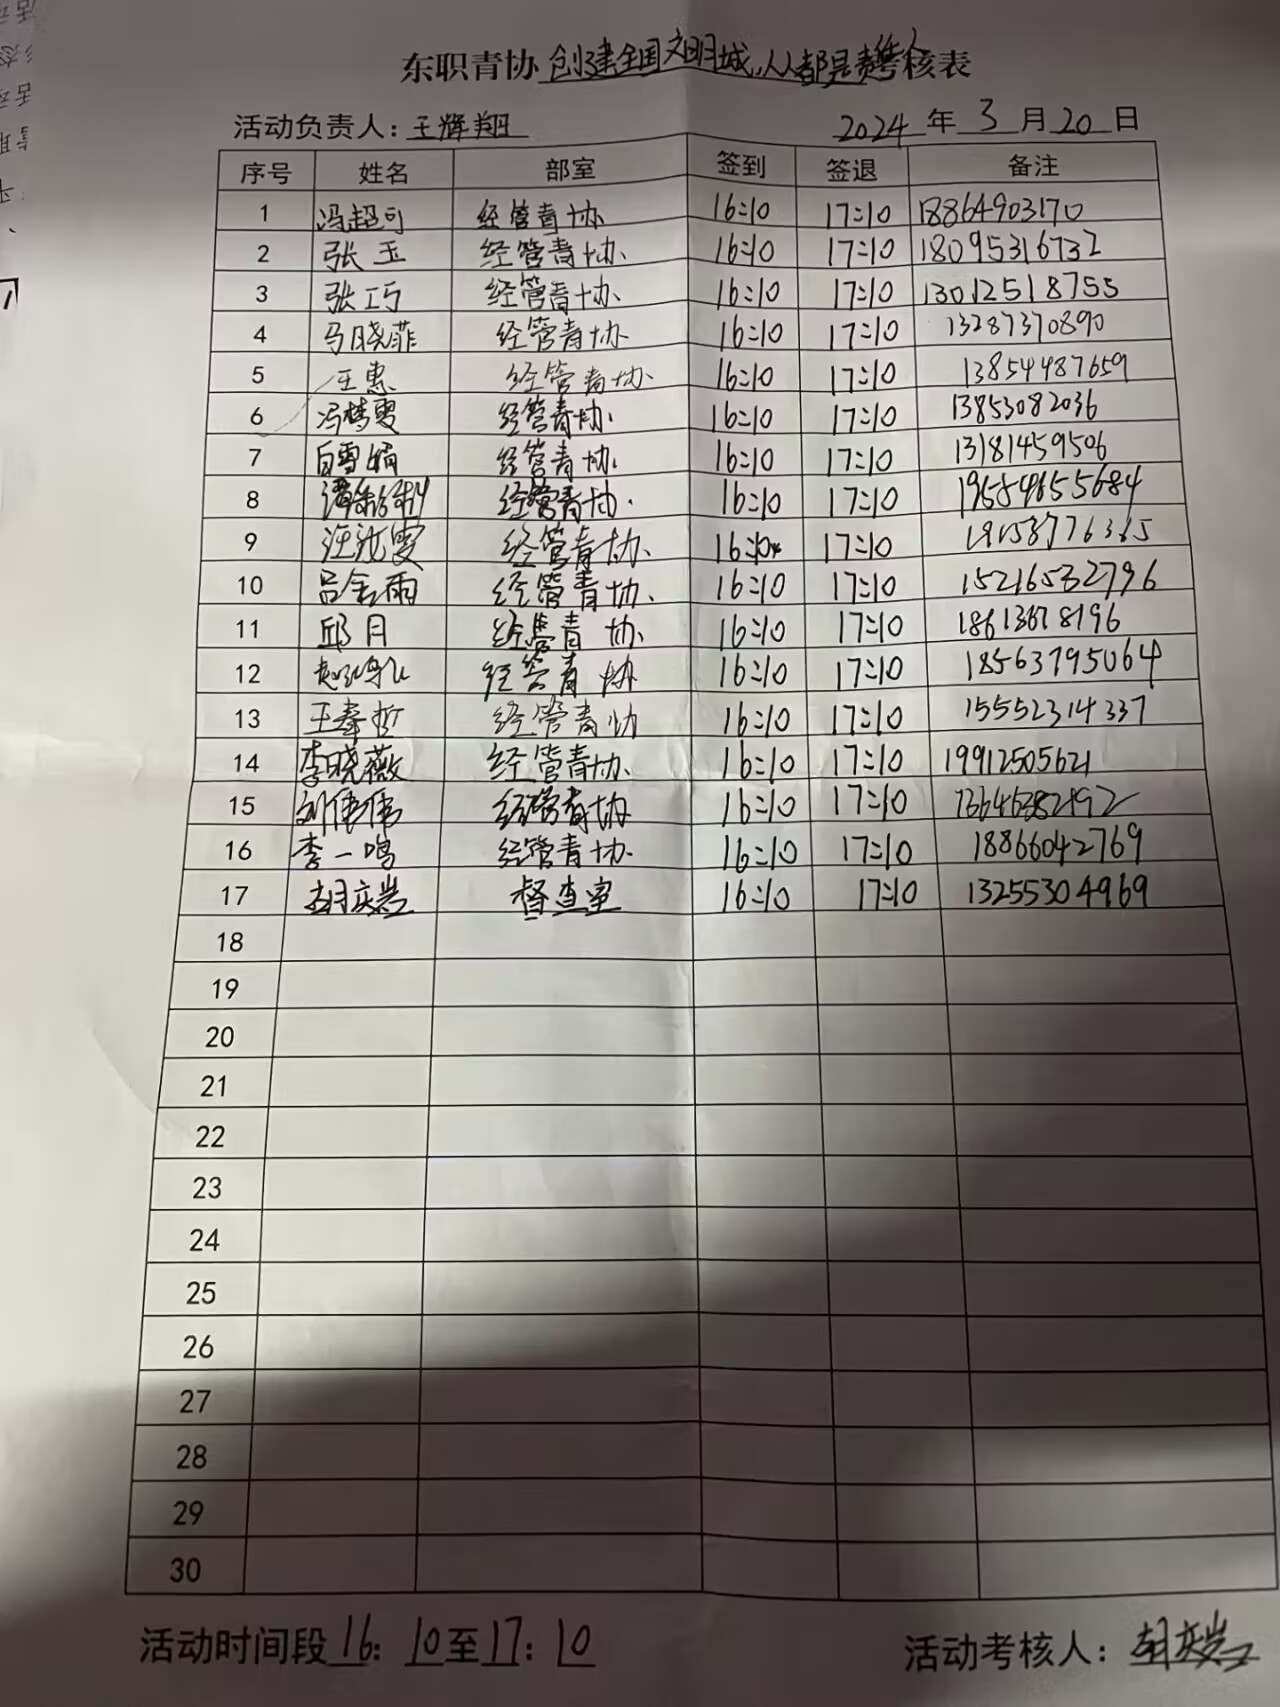 东职青协 创建全国文明城,人人都是责任人 考核表
活动负责人：王辉翔 2024 年 3 月 20 日
序号 姓名 部室 签到 签退 备注
1 冯超可 经管青协 16:10 17:10 18864903170
2 张玉 经管青协 16:10 17:10 18095316732
3 张巧 经管青协 16:10 17:10 13012518755
4 马晓菲 经管青协 16:10 17:10 13287370890
5 王惠 经管青协 16:10 17:10 13854487659
6 冯梦雯 经管青协 16:10 17:10 13853082036
7 白雪娟 经管青协 16:10 17:10 13181459506
8 经管青协 16:10 17:10 19554655684
9 经管青协 16:10 17:10 19158776365
10 吕金雨 经管青协 16:10 17:10 15216532796
11 邱月 经管青协 16:10 17:10 18613678196
12 经管青协 16:10 17:10 18563795064
13 王奉哲 经管青协 16:10 17:10 15552314337
14 李晓薇 经管青协 16:10 17:10 19912505621
15 刘伟伟 经管青协 16:10 17:10 13646382192
16 李一鸣 经管青协 16:10 17:10 18866042769
17 胡庆岩 督查室 16:10 17:10 13255304969
18
19
20
21
22
23
24
25
26
27
28
29
30
活动时间段 16：10至17：10 活动考核人：胡庆岩